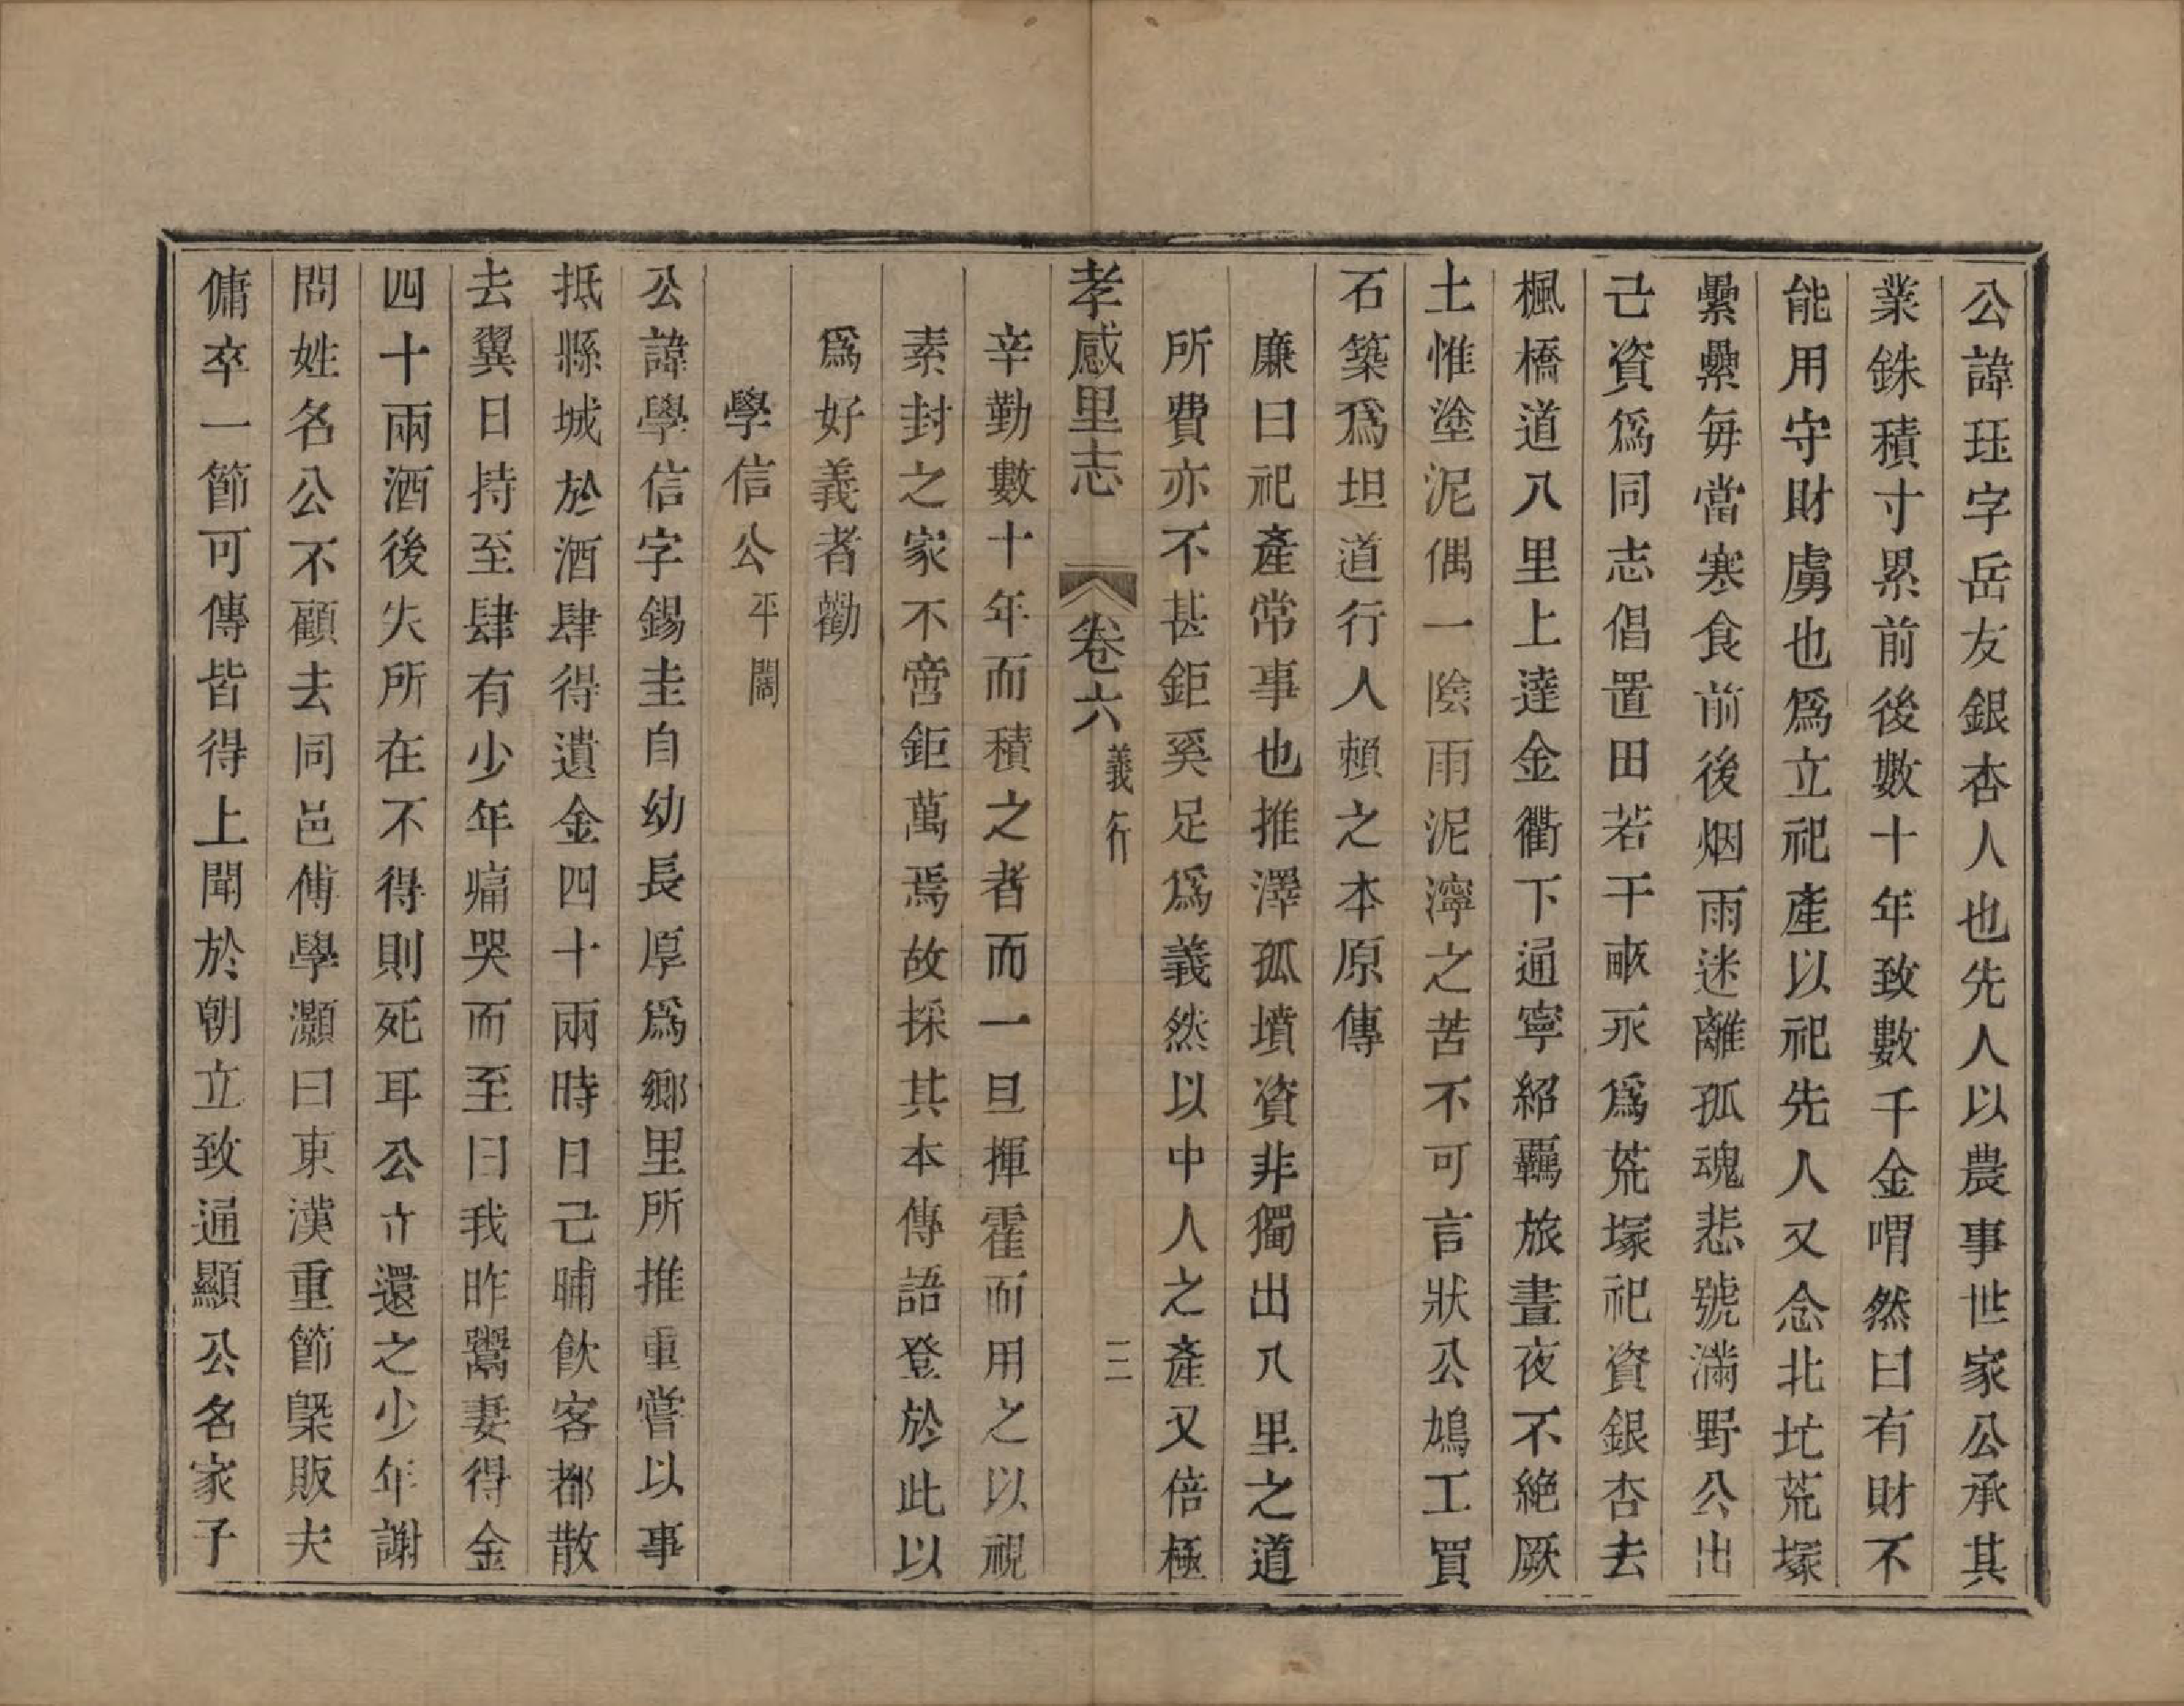 公諱珏字岳友銀杏人也先人以農事世家公承其
業銖積寸累前後數十年致數千金喟然曰有財不
能用守財虜也爲立祀產以祀先人又念北圠荒塚
纍纍每當寒食前後烟雨迷離孤魂悲號滿野公出
己資爲同志倡置田若干畝永爲荒塚祀資銀杏去
楓橋道八里上達金衢下通寧紹羈旅晝夜不絕厥
土惟塗泥偶一陰雨泥濘之苦不可言狀公鳩工買
石築爲坦道行人賴之本原傳
廉曰祀產常事也推澤孤墳資非獨出八里之道
所費亦不甚鉅奚足爲義然以中人之產又倍極
孝感里志 卷六 義行 二
辛勤數十年而積之者而一旦揮霍而用之以視
素封之家不啻鉅萬焉故採其本傳語登於此以
爲好義者勸
學信公平闊
公諱學信字錫圭自幼長厚爲鄉里所推重嘗以事
抵縣城於酒肆得遺金四十兩時日己晡飲客都散
去翼日持至肆有少年痛哭而至曰我昨鬻妻得金
四十兩酒後失所在不得則死耳公立還之少年謝
問姓名公不顧去同邑傅學灝曰東漢重節槩販夫
傭卒一節可傳皆得上聞於朝立致通顯公名家子